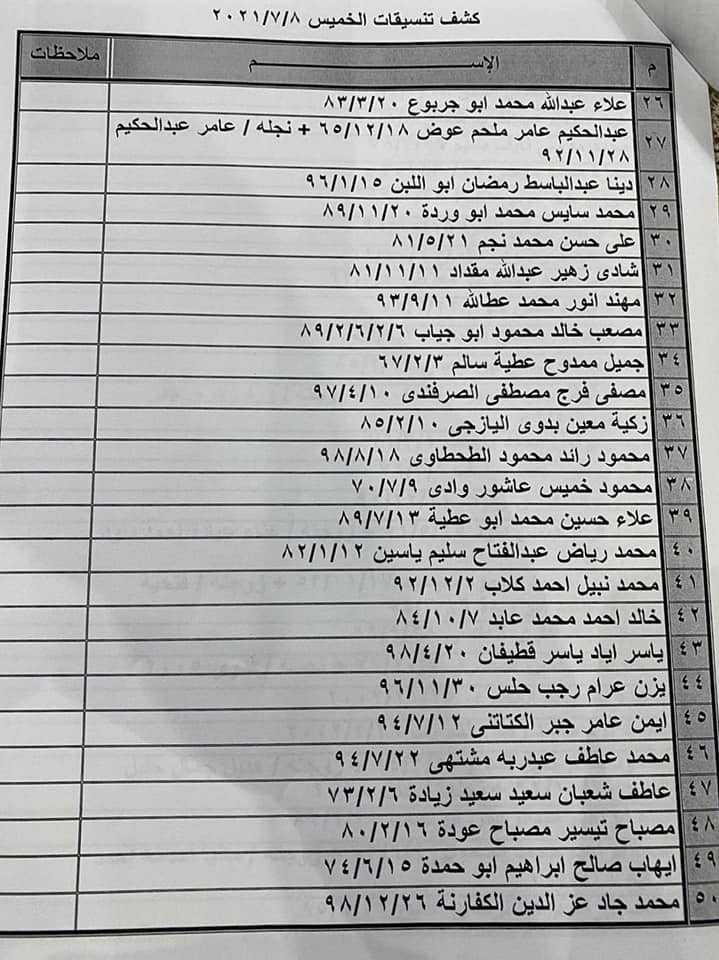 كشف تنسيقات الخميس ٢٠٢١/٧/٨
م الإســـــم ملاحظات
٢٦ علاء عبدالله محمد ابو جربوع ٨٣/٣/٢٠
٢٧ عبدالحكيم عامر ملحم عوض ٦٥/١٢/١٨ + نجله / عامر عبدالحكيم
٩٢/١١/٢٨
٢٨ دينا عبدالباسط رمضان ابو اللبن ٩٦/١/١٥
٢٩ محمد سايس محمد ابو وردة ٨٩/١١/٢٠
٣٠ على حسن محمد نجم ٨١/٥/٢١
٣١ شادى زهير عبدالله مقداد ٨١/١١/١١
٣٢ مهند انور محمد عطالله ٩٣/٩/١١
٣٣ مصعب خالد محمود ابو جياب ٨٩/٢/٦/٢/٦
٣٤ جميل ممدوح عطية سالم ٦٧/٢/٣
٣٥ مصفى فرج مصطفى الصرفندى ٩٧/٤/١٠
٣٦ زكية معين بدوى اليازجى ٨٥/٢/١٠
٣٧ محمود رائد محمود الطحطاوى ٩٨/٨/١٨
٣٨ محمود خميس عاشور وادى ٧٠/٧/٩
٣٩ علاء حسين محمد ابو عطية ٨٩/٧/١٣
٤٠ محمد رياض عبدالفتاح سليم ياسين ٨٢/١/١٢
٤١ محمد نبيل احمد كلاب ٩٢/١٢/٢
٤٢ خالد احمد محمد عابد ٨٤/١٠/٧
٤٣ ياسر اياد ياسر قطيفان ٩٨/٤/٢٠
٤٤ يزن عرام رجب حلس ٩٦/١١/٣٠
٤٥ ايمن عامر جبر الكتاتنى ٩٤/٧/١٢
٤٦ محمد عاطف عبدربه مشتهى ٩٤/٧/٢٢
٤٧ عاطف شعبان سعيد سعيد زيادة ٧٣/٢/٦
٤٨ مصباح تيسير مصباح عودة ٨٠/٢/١٦
٤٩ ايهاب صالح ابراهيم ابو حمدة ٧٤/٦/١٥
٥٠ محمد جاد عز الدين الكفارنة ٩٨/١٢/٢٦